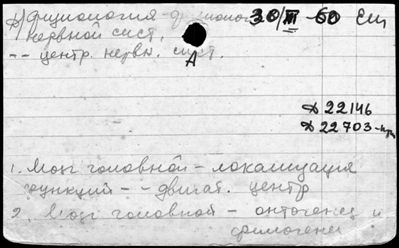 Физиология - физиолог. 30/III-60 Еш
нервной сист.
-- центр. нервн. сист.
А
Д 22146
Д 22703-кр
1. Мозг головной - локализация
функций - - двигат. центр
2. Мозг головной - онтогенез и
филогенез